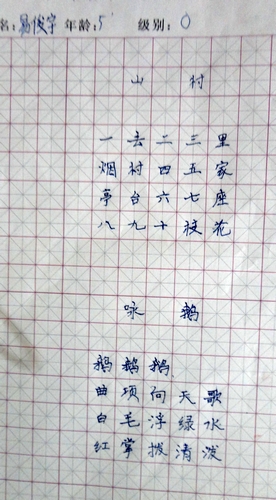 名:易俊宇 年龄:5 级别:0
山村
一去二三里
烟村四五家
亭台六七座
八九十枝花
咏鹅
鹅鹅鹅
曲项向天歌
白毛浮绿水
红掌拨清波